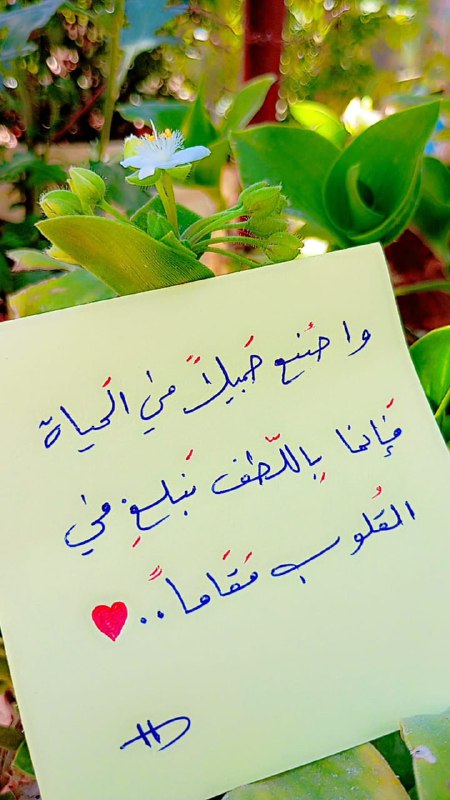 واصُنع جَميلاً في الَحياة
فَإنما بِاللّطف نَبلغِ في
القُلوب مَقَاماً..
HD